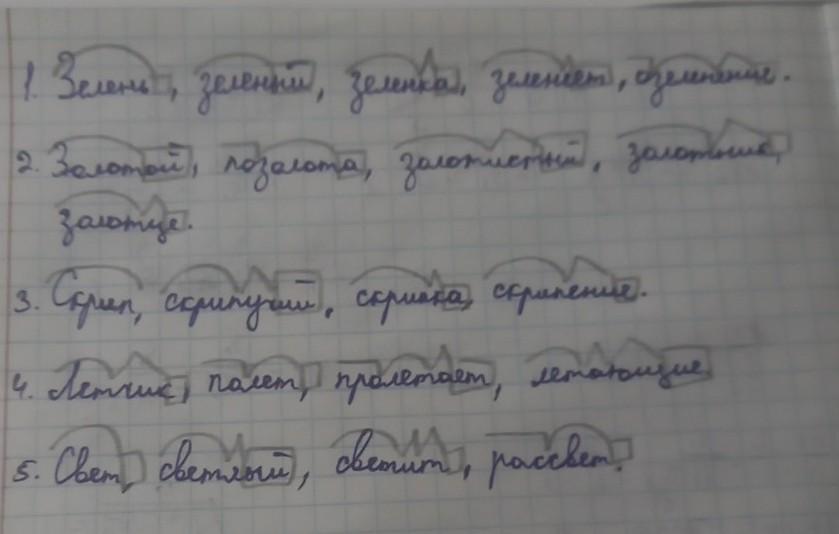 1. Зелень, зеленый, зеленка, зеленеет, озеленение.
2. Золотой, позолота, золотистый, золотник,
золотце.
3. Скрип, скрипучий, скрипка, скрипение.
4. Летчик, полет, пролетает, летающие
5. Свет, светлый, светит, рассвет.